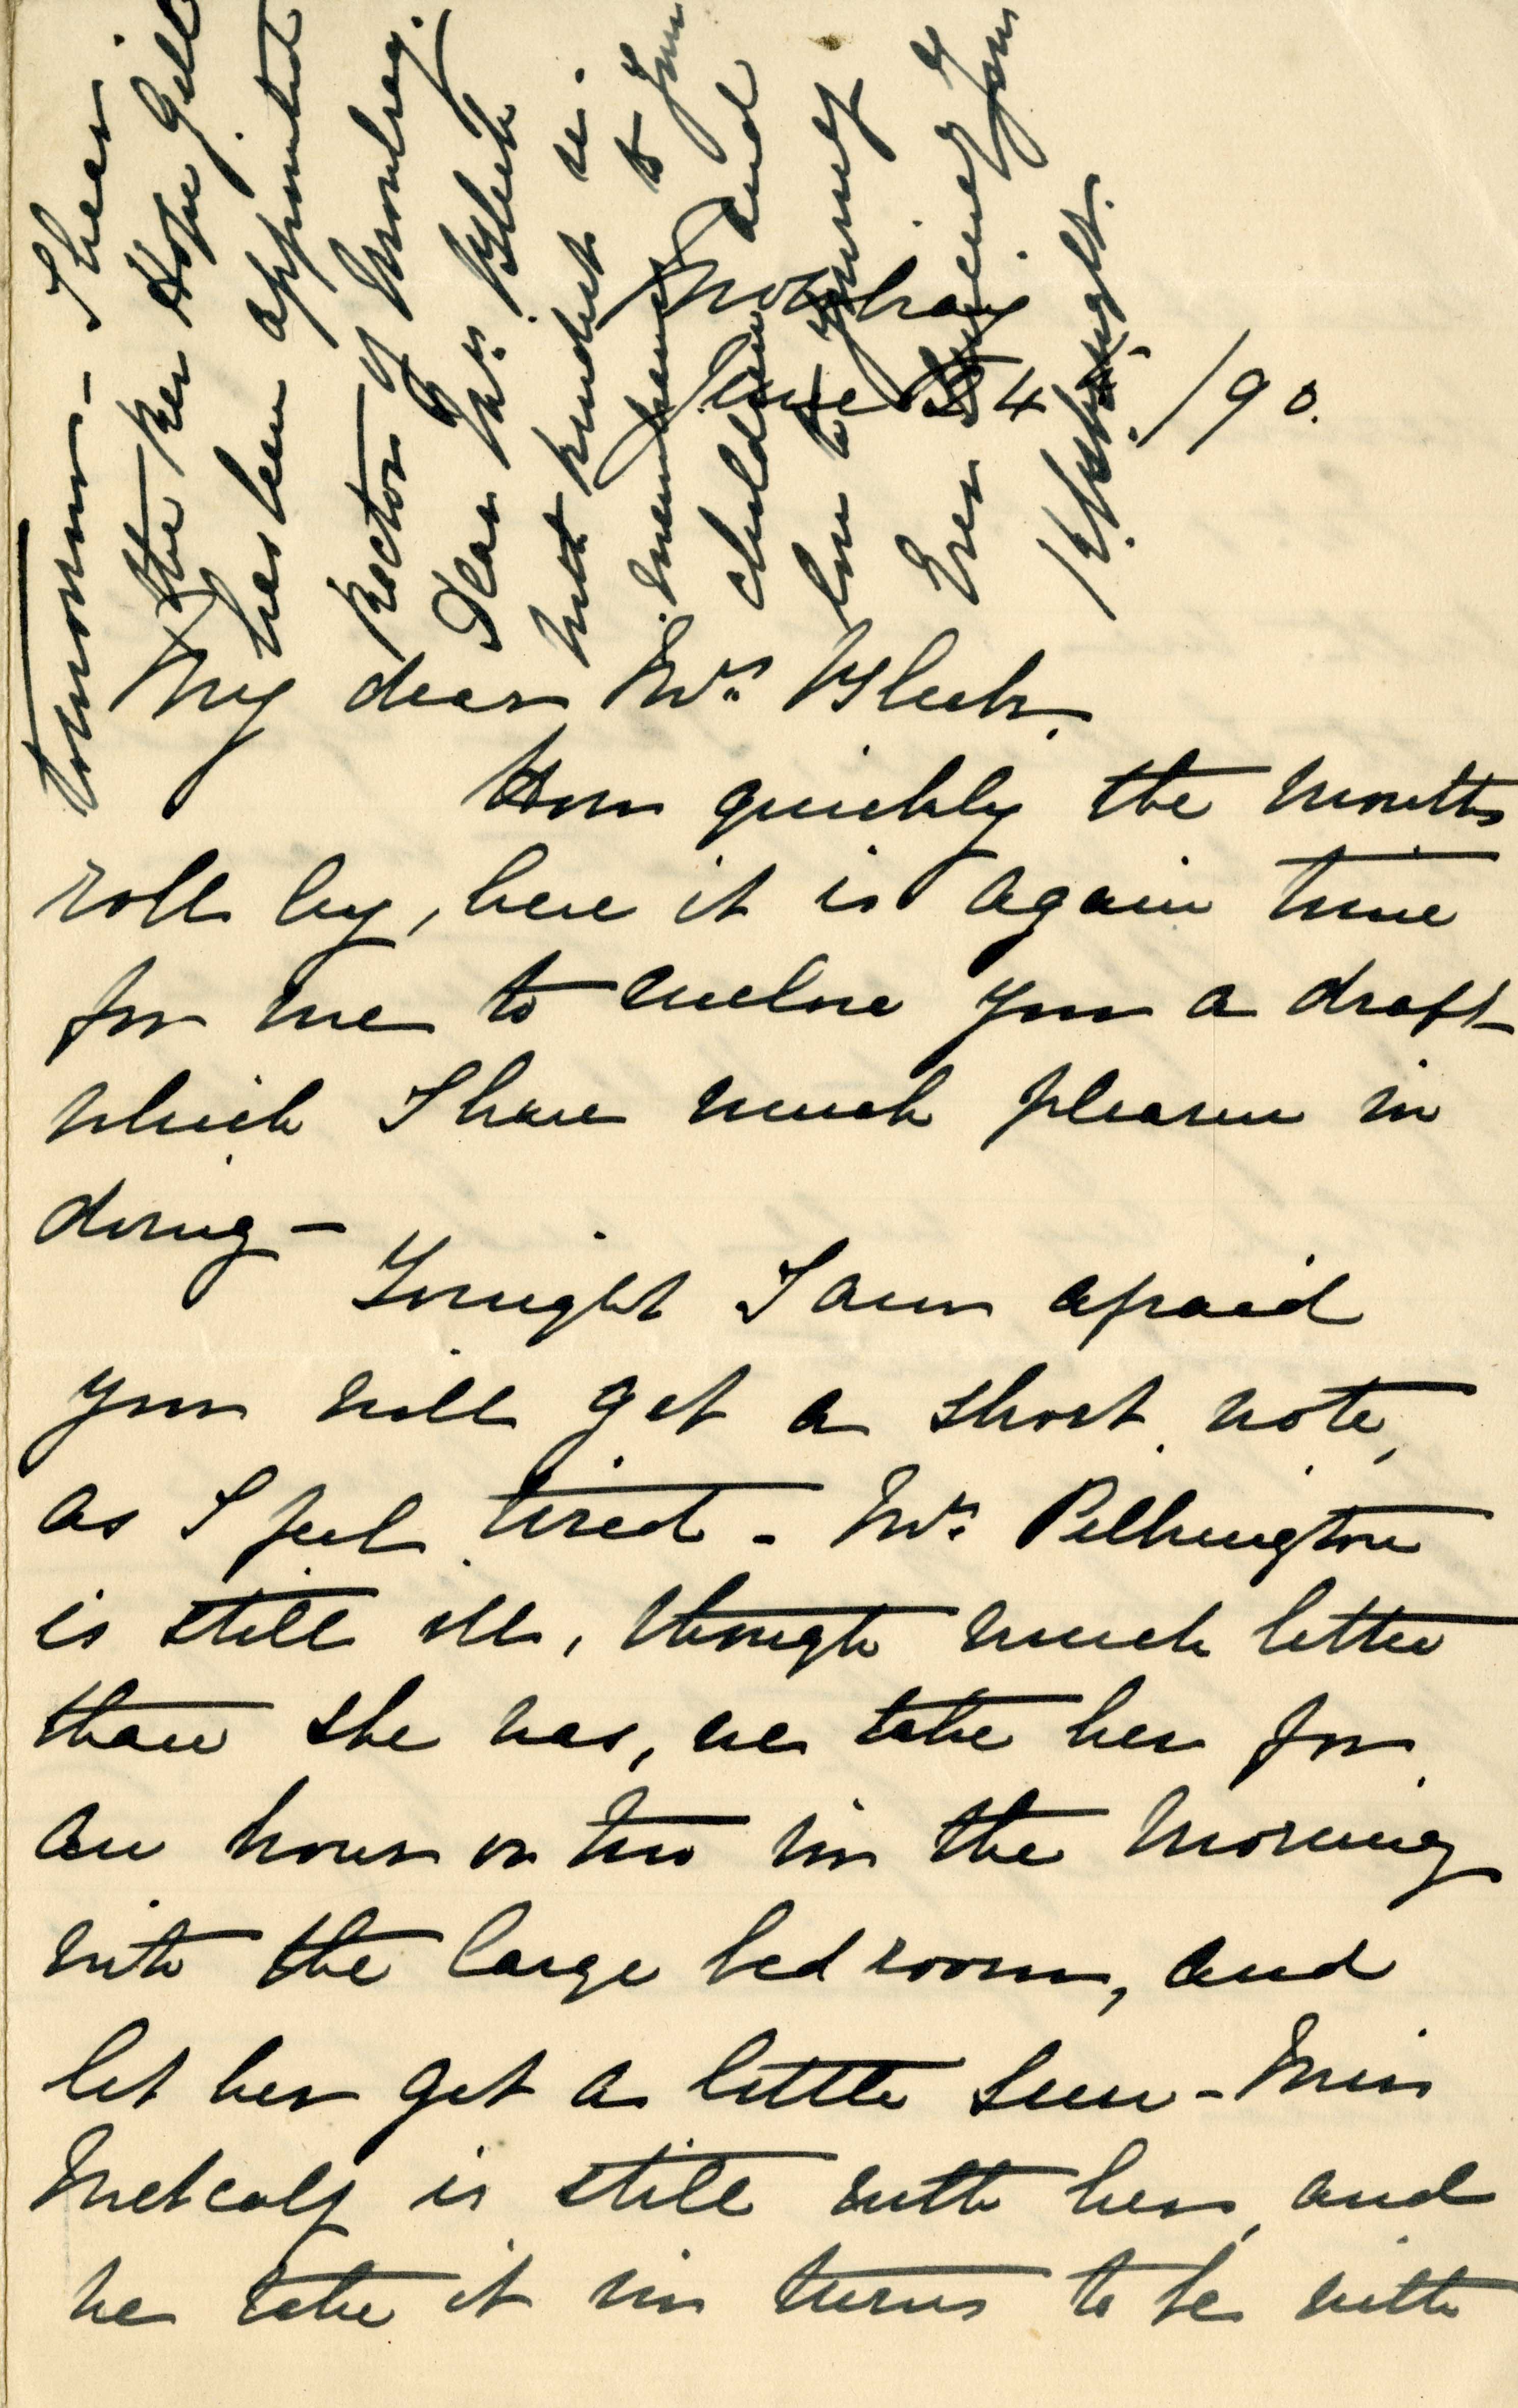 Mowbray
June 24 /90.
My dear Mrs. Bleek.
How quickly the months
roll by, here it is again time
for me to enclose you a draft
which I have much pleasure in
doing —
Tonight I am afraid
you will get a short note,
as I feel tired - Mrs. Pilkington
is still ill, though much better
than she was, we take her for
an hour or two in the morning
into the large bed room, and
let her get a little sun - Miss
Metcalf is still with her, and
we take it in turns to be with
tomorrow - I hear
the Rev Hope Gill
has been appointed
Rector of Mowbray.
Dear Mrs. Bleek
with kindest re-
membrances to you
children and
love to yourself
Ever